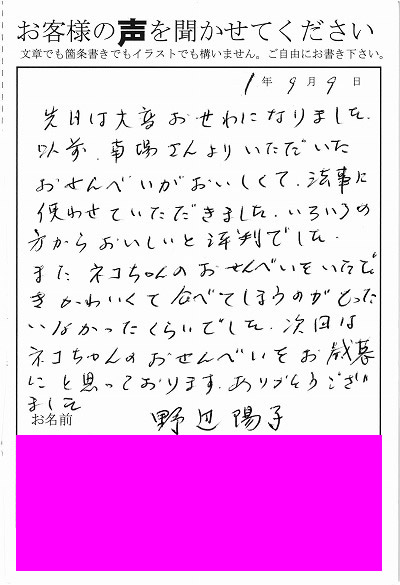 お客様の声を聞かせてください
文章でも箇条書きでもイラストでも構いません。ご自由にお書き下さい。
1年9月9日
先日は大変おせわになりました。
以前、南場さんよりいただいた
おせんべいがおいしくて、法事に
使わせていただきました。いろいろの
方からおいしいと評判でした。
またネコちゃんのおせんべいをいただ
きかわいくて食べてしまうのがもったい
いなかったくらいでした。次回は
ネコちゃんのおせんべいをお歳暮
にと思っております。ありがとうござい
ました
お名前 野辺陽子